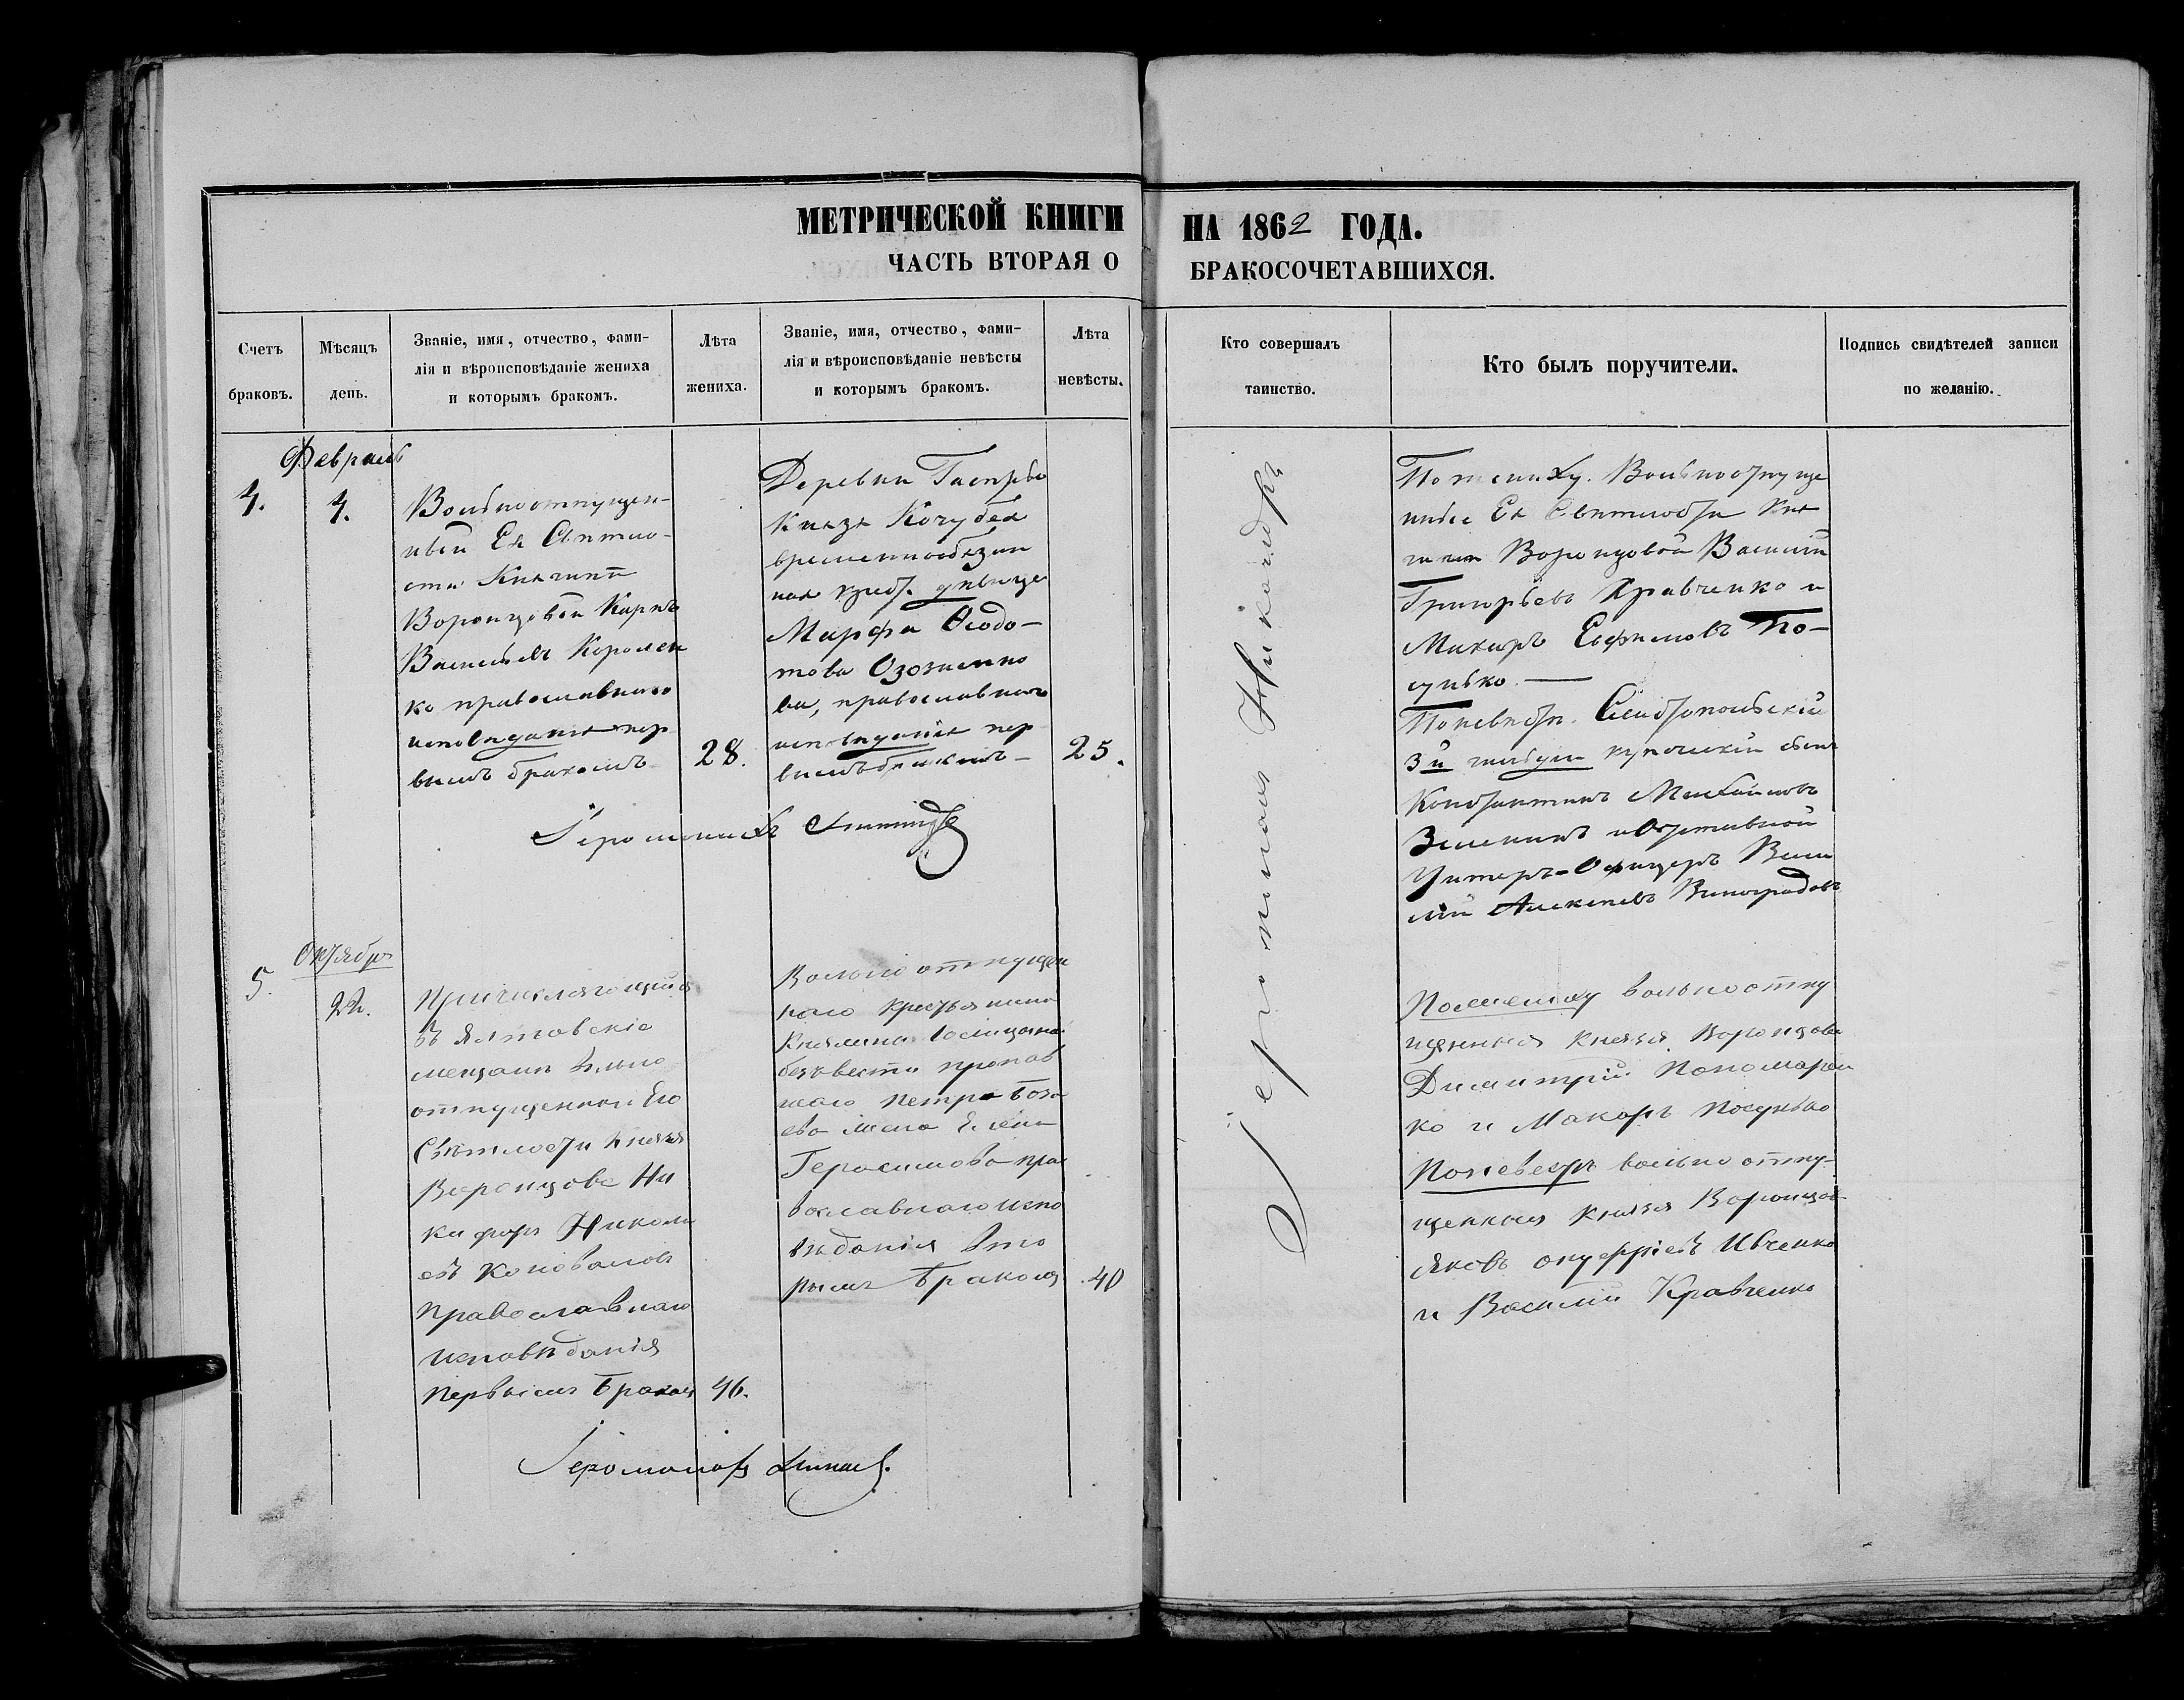 МЕТРИЧЕСКОЙ КНИГИ НА 1862 ГОДА.
ЧАСТЬ ВТОРАЯ О БРАКОСОЧЕТАВШИХСЯ.
Счетъ
браковъ.
Мѣсяцъ
день.
Званіе, имя, отчество, фами-
лія и вѣроисповѣданіе жениха
и которымъ бракомъ.
Лѣта
жениха.
Званіе, имя, отчество, фами-
лія и вѣроисповѣданіе невѣсты
и которымъ бракомъ.
Лѣта
невѣсты.
Кто совершалъ
таинство.
Кто былъ поручители.
Подпись свидѣтелей записи
по желанію.
Февраль
4.
4.
Вольноотпущен-
ный Ея Свѣтло-
сти Княгини
Воронцовой Карпъ
Васильевъ Королен
ко православнаго
исповѣданія пер
вымъ бракомъ
28.
Деревни Гаспры
Князя Кочубея
временнообязан
ная
Марфа Ѳедо-
това
ва, православнаго
исповѣданія пер
вымъ бракомъ
25.
Іеромонахъ
Іеромонахъ Никандръ
По жениху. Вольноотпуще
нные Ея Свѣтлости Кня
гини Воронцовой Василій
Григорьевъ Кравченко и
Макаръ Евфимовъ По-
сунько.
По невѣстѣ. Севастопольскій
3й гильдіи купеческій сынъ
Константинъ Михайловъ
Зеленинъ и Отставной
Унтеръ-Офицеръ Васи
лій Алексѣевъ Виноградовъ
Октябрь
5.
22.
Причисляющійся
въ Ялтовскіе
мещане вольно
отпущенной Его
Свѣтлости Князя
Воронцова Ни
кифоръ Никола
евъ Коноваловъ
Православнаго
исповѣданія
первымъ бракомъ
46.
Вольно отпущен
наго Крестьянина
безвести пропав
шаго Петра
жена Елена
Герасимова пра
вославнаго испо
вѣданія вто
рымъ бракомъ
40
Іеромонахъ
По жениху вольноотпу
щенныя Князя Воронцова
Димитрій Пономарен
ко и Макаръ Посунько
По невестѣ вольно отпу-
щенныя Князя Воронцова
Яковъ Онуфріевъ Ивченко
и Василій Кравченко